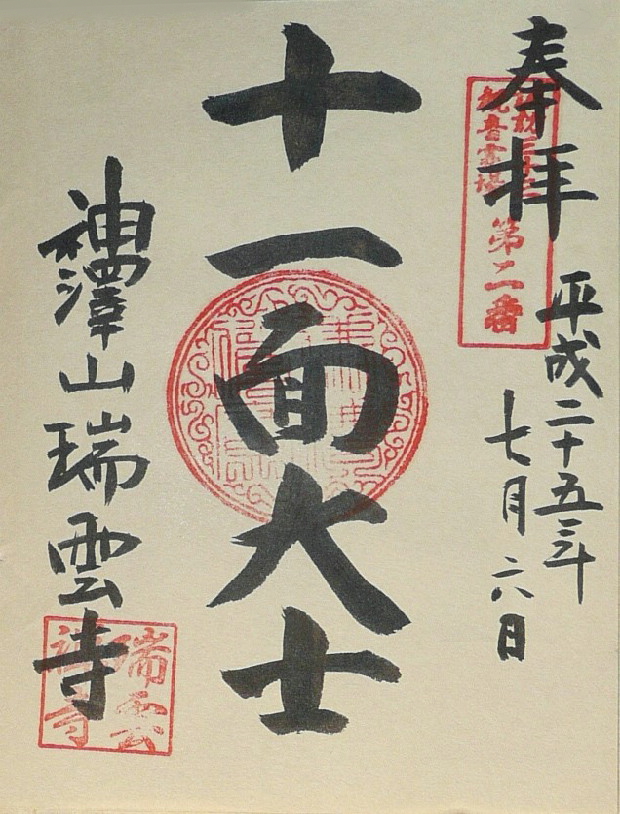 奉拝
平成二十五年
七月六日
第二番
十一面大士
神澤山瑞雲寺
瑞雲
禅寺